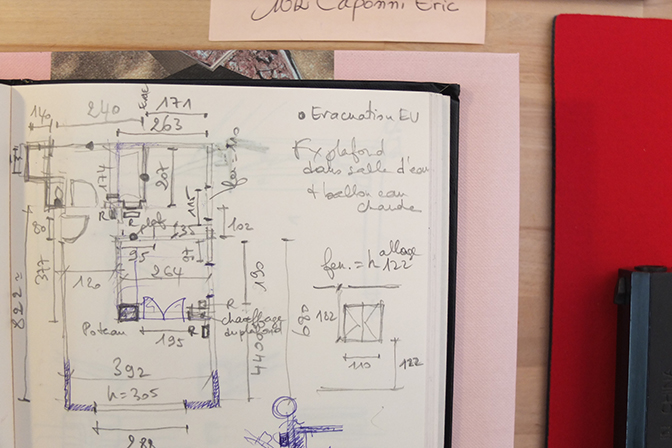 Caponni Eric
240
140
171
263
• Evacuation EU
Fx plafond
dans salle d'eau
+ ballon eau
chaude
174
207
115
R
plaf
135
102
80
95
377
120
264
190
822
allège
fen. = h 122
R
chauffage
du plafond
Poteau
R
195
122
110
122
392
h=305